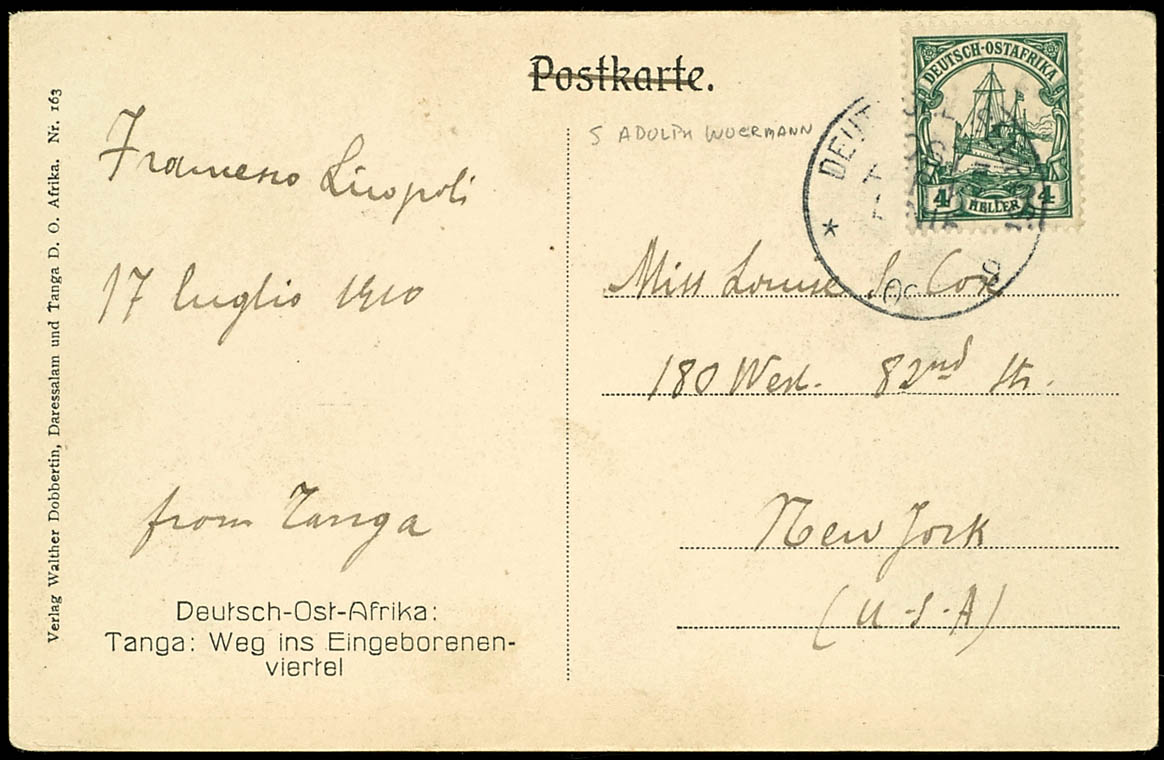 Postkarte.
S ADOLPH WOERMANN
DEUTSCH-OSTAFRIKA
4 HELLER 4
DEUT
Verlag Walther Dobbertin, Daressalam und Tanga D. O. Afrika. Nr. 163
17 luglio 1910
from Tanga
Deutsch-Ost-Afrika:
Tanga: Weg ins Eingeborenen-
viertel
Miss Louise S. Cox
180 West. 82nd Str.
New York
(U-S-A)